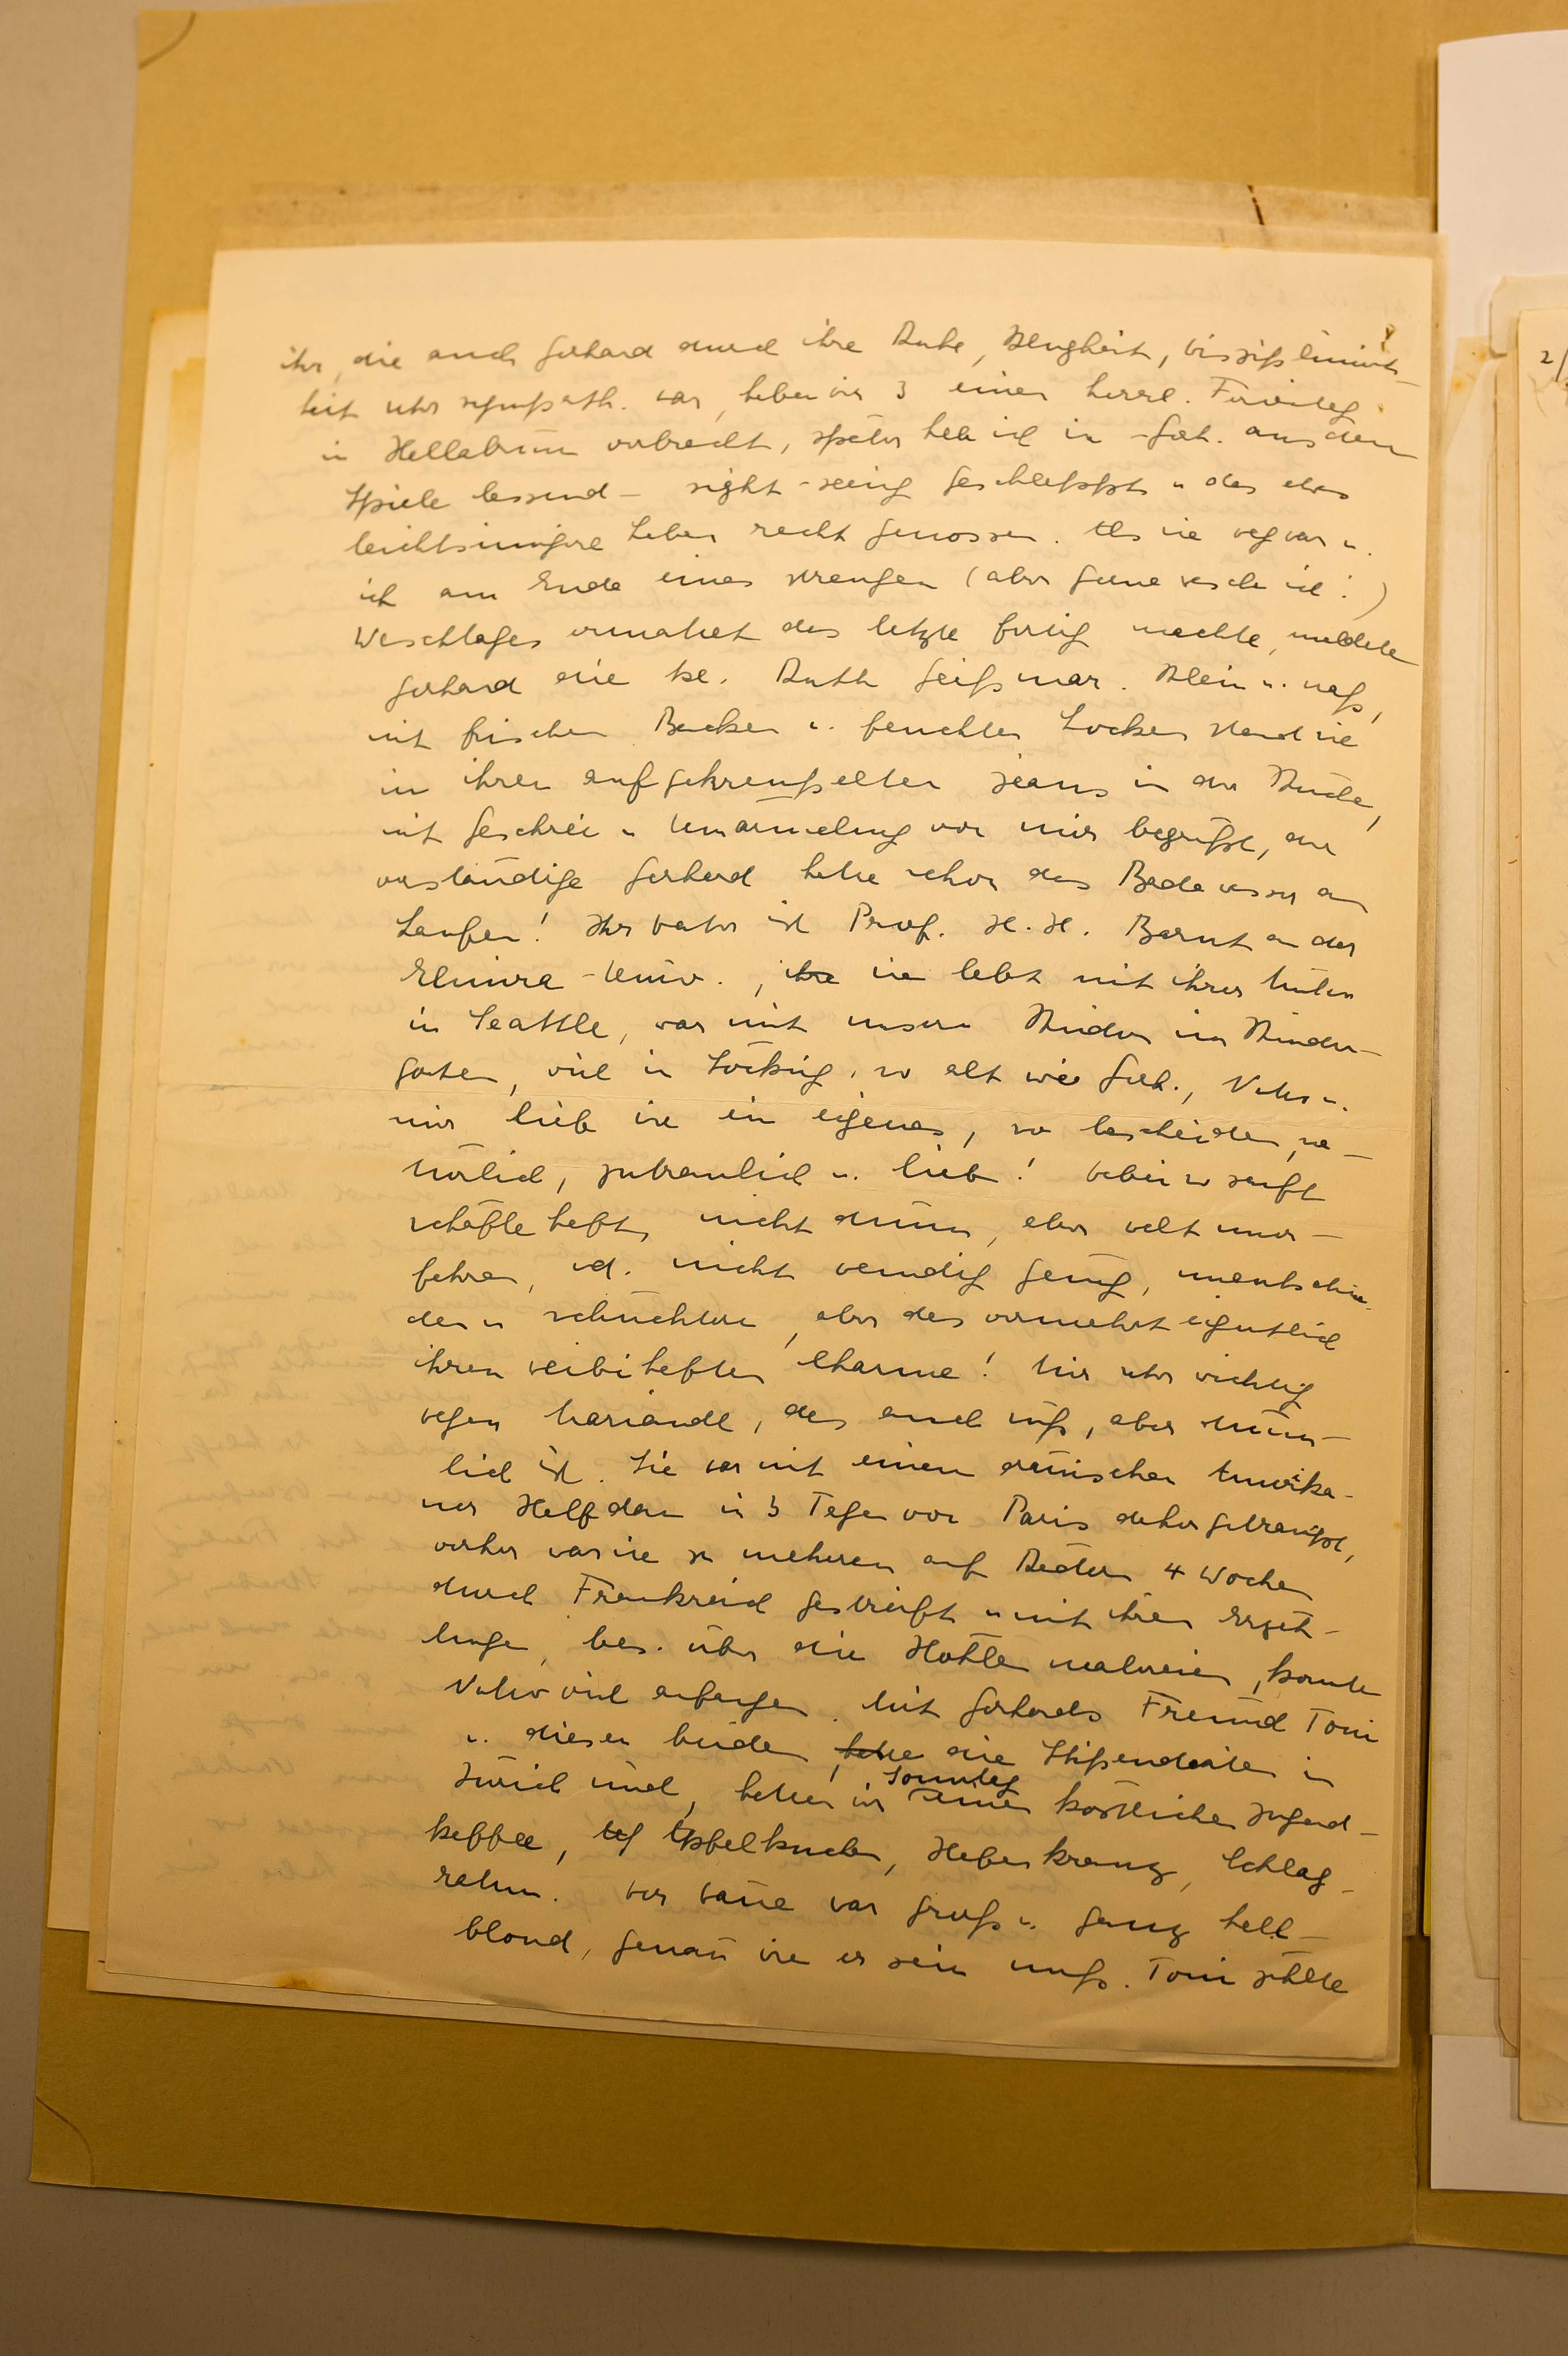 ihr, die auch Gerhard durch ihre Ruhe, Klugheit, Disziplinirt-
heit sehr sympath. war, haben wir 3 einen herrl. Ferientag
in Hellabrunn verbracht, später hab ich sie - Gerh. aus dem
Spiele lassend - sight-seeing geschleppt u das etwas
leichtsinnigere Leben recht genossen. Als sie weg war u.
ich am Ende eines strengen (aber gerne wasche ich!)
Waschtages ermattet das letzte fertig machte, meldete
Gerhard die kl. Ruth Geißmar. Klein u. naß,
mit frischen Backen u. feuchten Locken stand sie
in ihren aufgekrempelten Jeans in der Küche,
mit Geschrei u Umarmelung von mir begrüßt, der
verständige Gerhard hatte schon das Badewasser am
Laufen! Ihr Vater ist Prof. H. H. Barnt an der
Elmira-Univ., ihre sie lebt mit ihrer Mutter
in Seattle, war mit unsern Kindern im Kinder-
garten, viel in Söcking, so alt wie Gerh., Vater u.
mir lieb wie ein eigenes, so bescheiden, na-
türlich, zutraulich u. lieb! Dabei so sanft
schäflehaft, nicht dumm, aber welt uner-
fahren, vd. nicht wendig genug, unentschie-
den u schüchtern, aber das vermehrt eigentlich
ihren weibihaften Charme! Mir sehr wichtig
wegen Mariandl, das auch süß, aber dümm-
lich ist. Sie war mit einem dänischen Amerika-
ner Halfdan in 3 Tagen von Paris daher getrampt,
vorher war sie zu mehreren auf Rädern 4 Wochen
durch Frankreich gestreift u mit ihren Erzäh-
lungen, bes. über die Höhlenmalereien, konnte
Vater viel anfangen. Mit Gerhards Freund Toni
u. diesen beiden, hatte die Stipendiaten in
Zürich sind, hatten wir Sonntag einen köstlichen Jugend-
kaffee, Apfelkuchen, Hefenkranz, Schlag-
rahm. Der Däne war groß u. ganz hell-
blond, genau wie er sein muß. Toni stellte